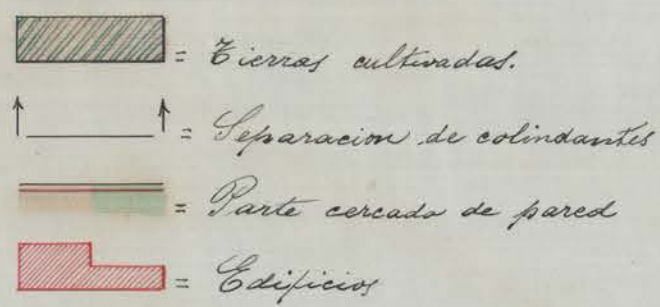 = Tierras cultivadas.
= Separacion de colindantes
= Parte cercada de pared
= Edificios